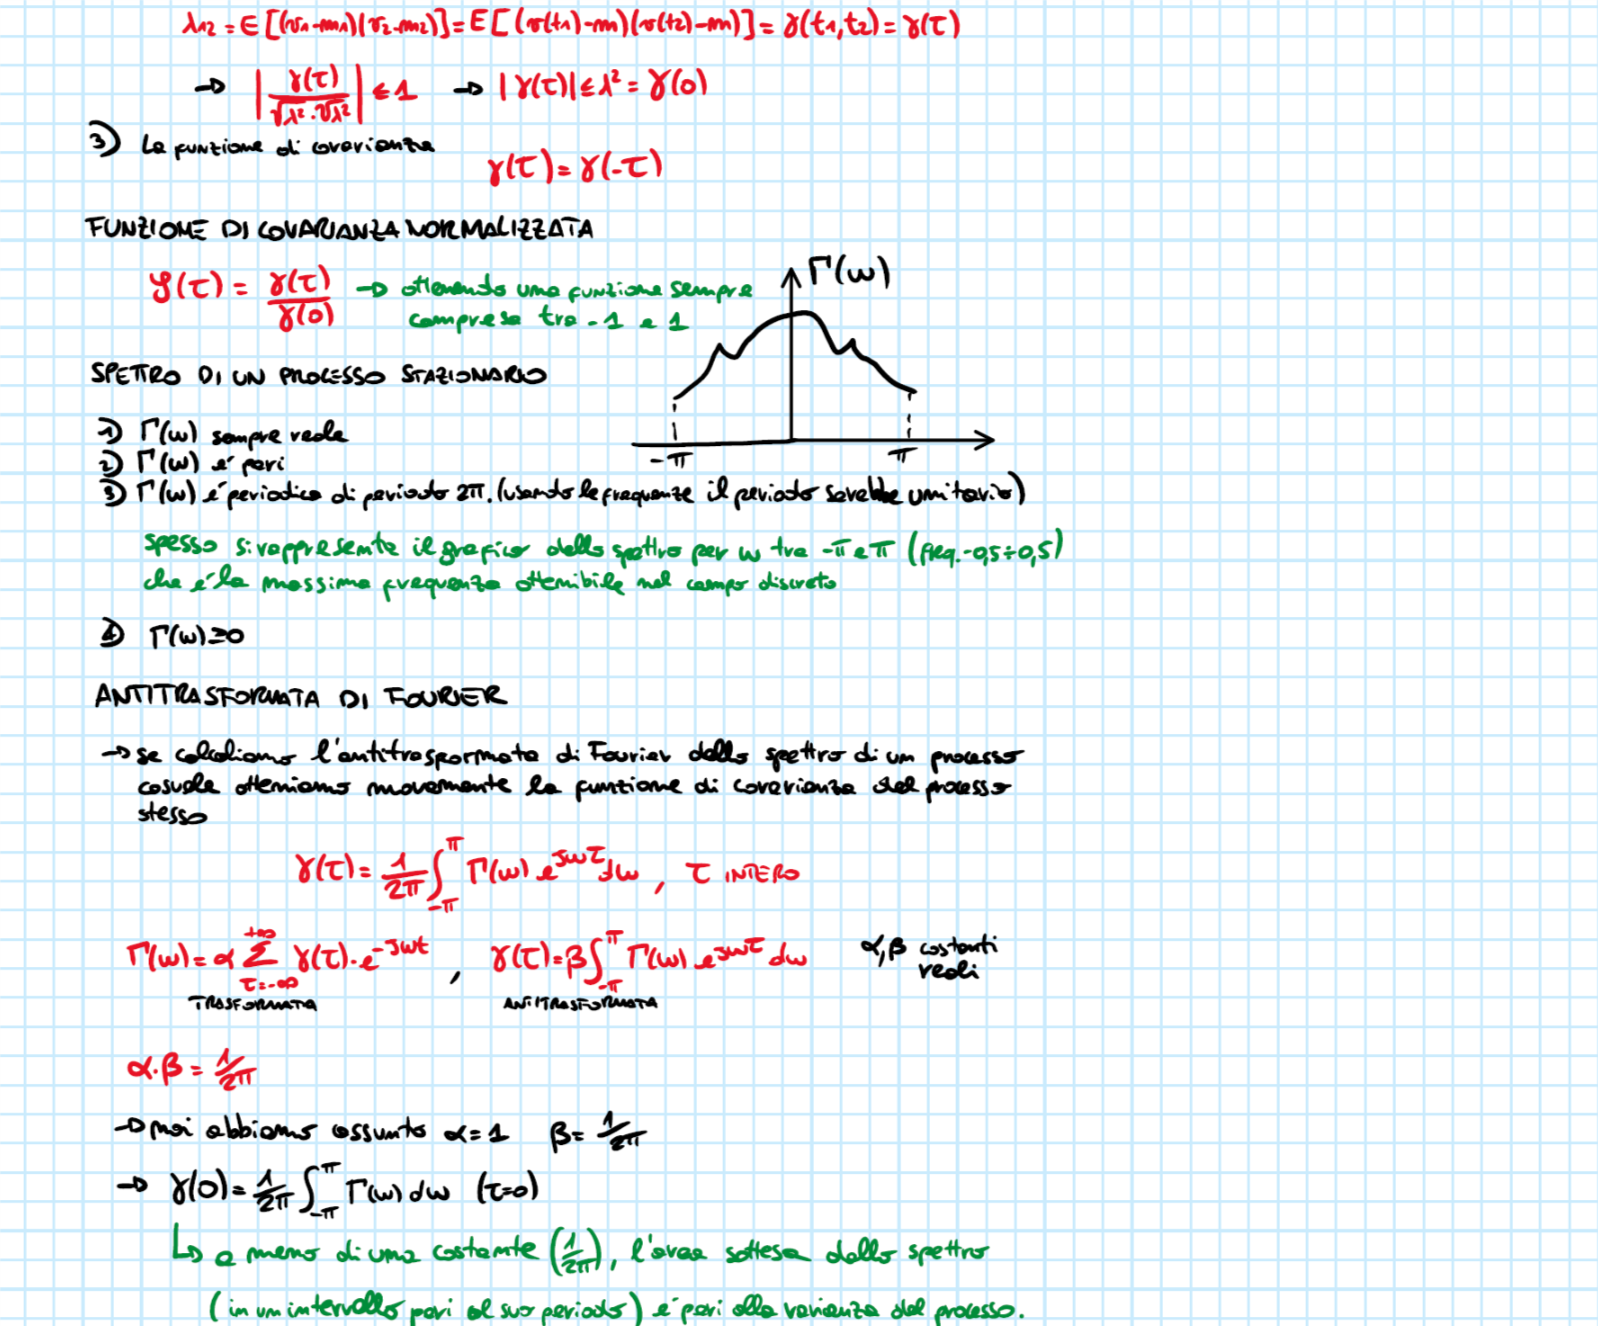 λ12 = E[(v1-m1)(v2-m2)] = E[(v(t1)-m)(v(t2)-m)] = γ(t1,t2) = γ(τ)
→ |γ(τ)/√λ²·√λ²| ≤ 1 → |γ(τ)| ≤ λ² = γ(0)
3) La funzione di covarianza
γ(τ) = γ(-τ)
FUNZIONE DI COVARIANZA NORMALIZZATA
ρ(τ) = γ(τ)/γ(0) → ottenendo una funzione sempre
compresa tra -1 e 1
Γ(ω)
-π π
SPETTRO DI UN PROCESSO STAZIONARIO
1) Γ(ω) sempre reale
2) Γ(ω) e' pari
3) Γ(ω) e' periodica di periodo 2π. (usando le frequenze il periodo sarebbe unitario)
spesso si rappresenta il grafico dello spettro per ω tra -π e π (freq. -0,5÷0,5)
che e' la massima frequenza ottenibile nel campo discreto
4) Γ(ω) ≥ 0
ANTITRASFORMATA DI FOURIER
→ se calcoliamo l'antitrasformata di Fourier dello spettro di un processo
casuale otteniamo nuovamente la funzione di covarianza del processo
stesso
γ(τ) = 1/2π ∫_{-π}^{π} Γ(ω) e^{jωτ} dω , τ INTERO
Γ(ω) = α Σ_{τ=-∞}^{+∞} γ(τ)·e^{-jωt} , γ(τ) = β ∫_{-π}^{π} Γ(ω) e^{jωτ} dω α,β costanti
reali
TRASFORMATA ANTITRASFORMATA
α·β = 1/2π
→ noi abbiamo assunto α=1 β= 1/2π
→ γ(0) = 1/2π ∫_{-π}^{π} Γ(ω) dω (τ=0)
↳ a meno di una costante (1/2π), l'area sottesa dallo spettro
(in un intervallo pari al suo periodo) e' pari alla varianza del processo.